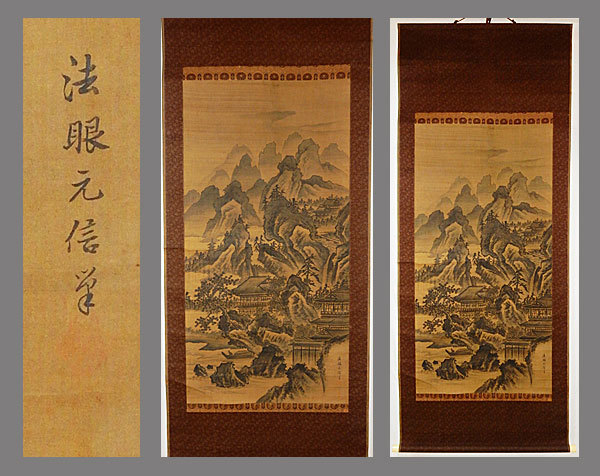 法眼元信筆